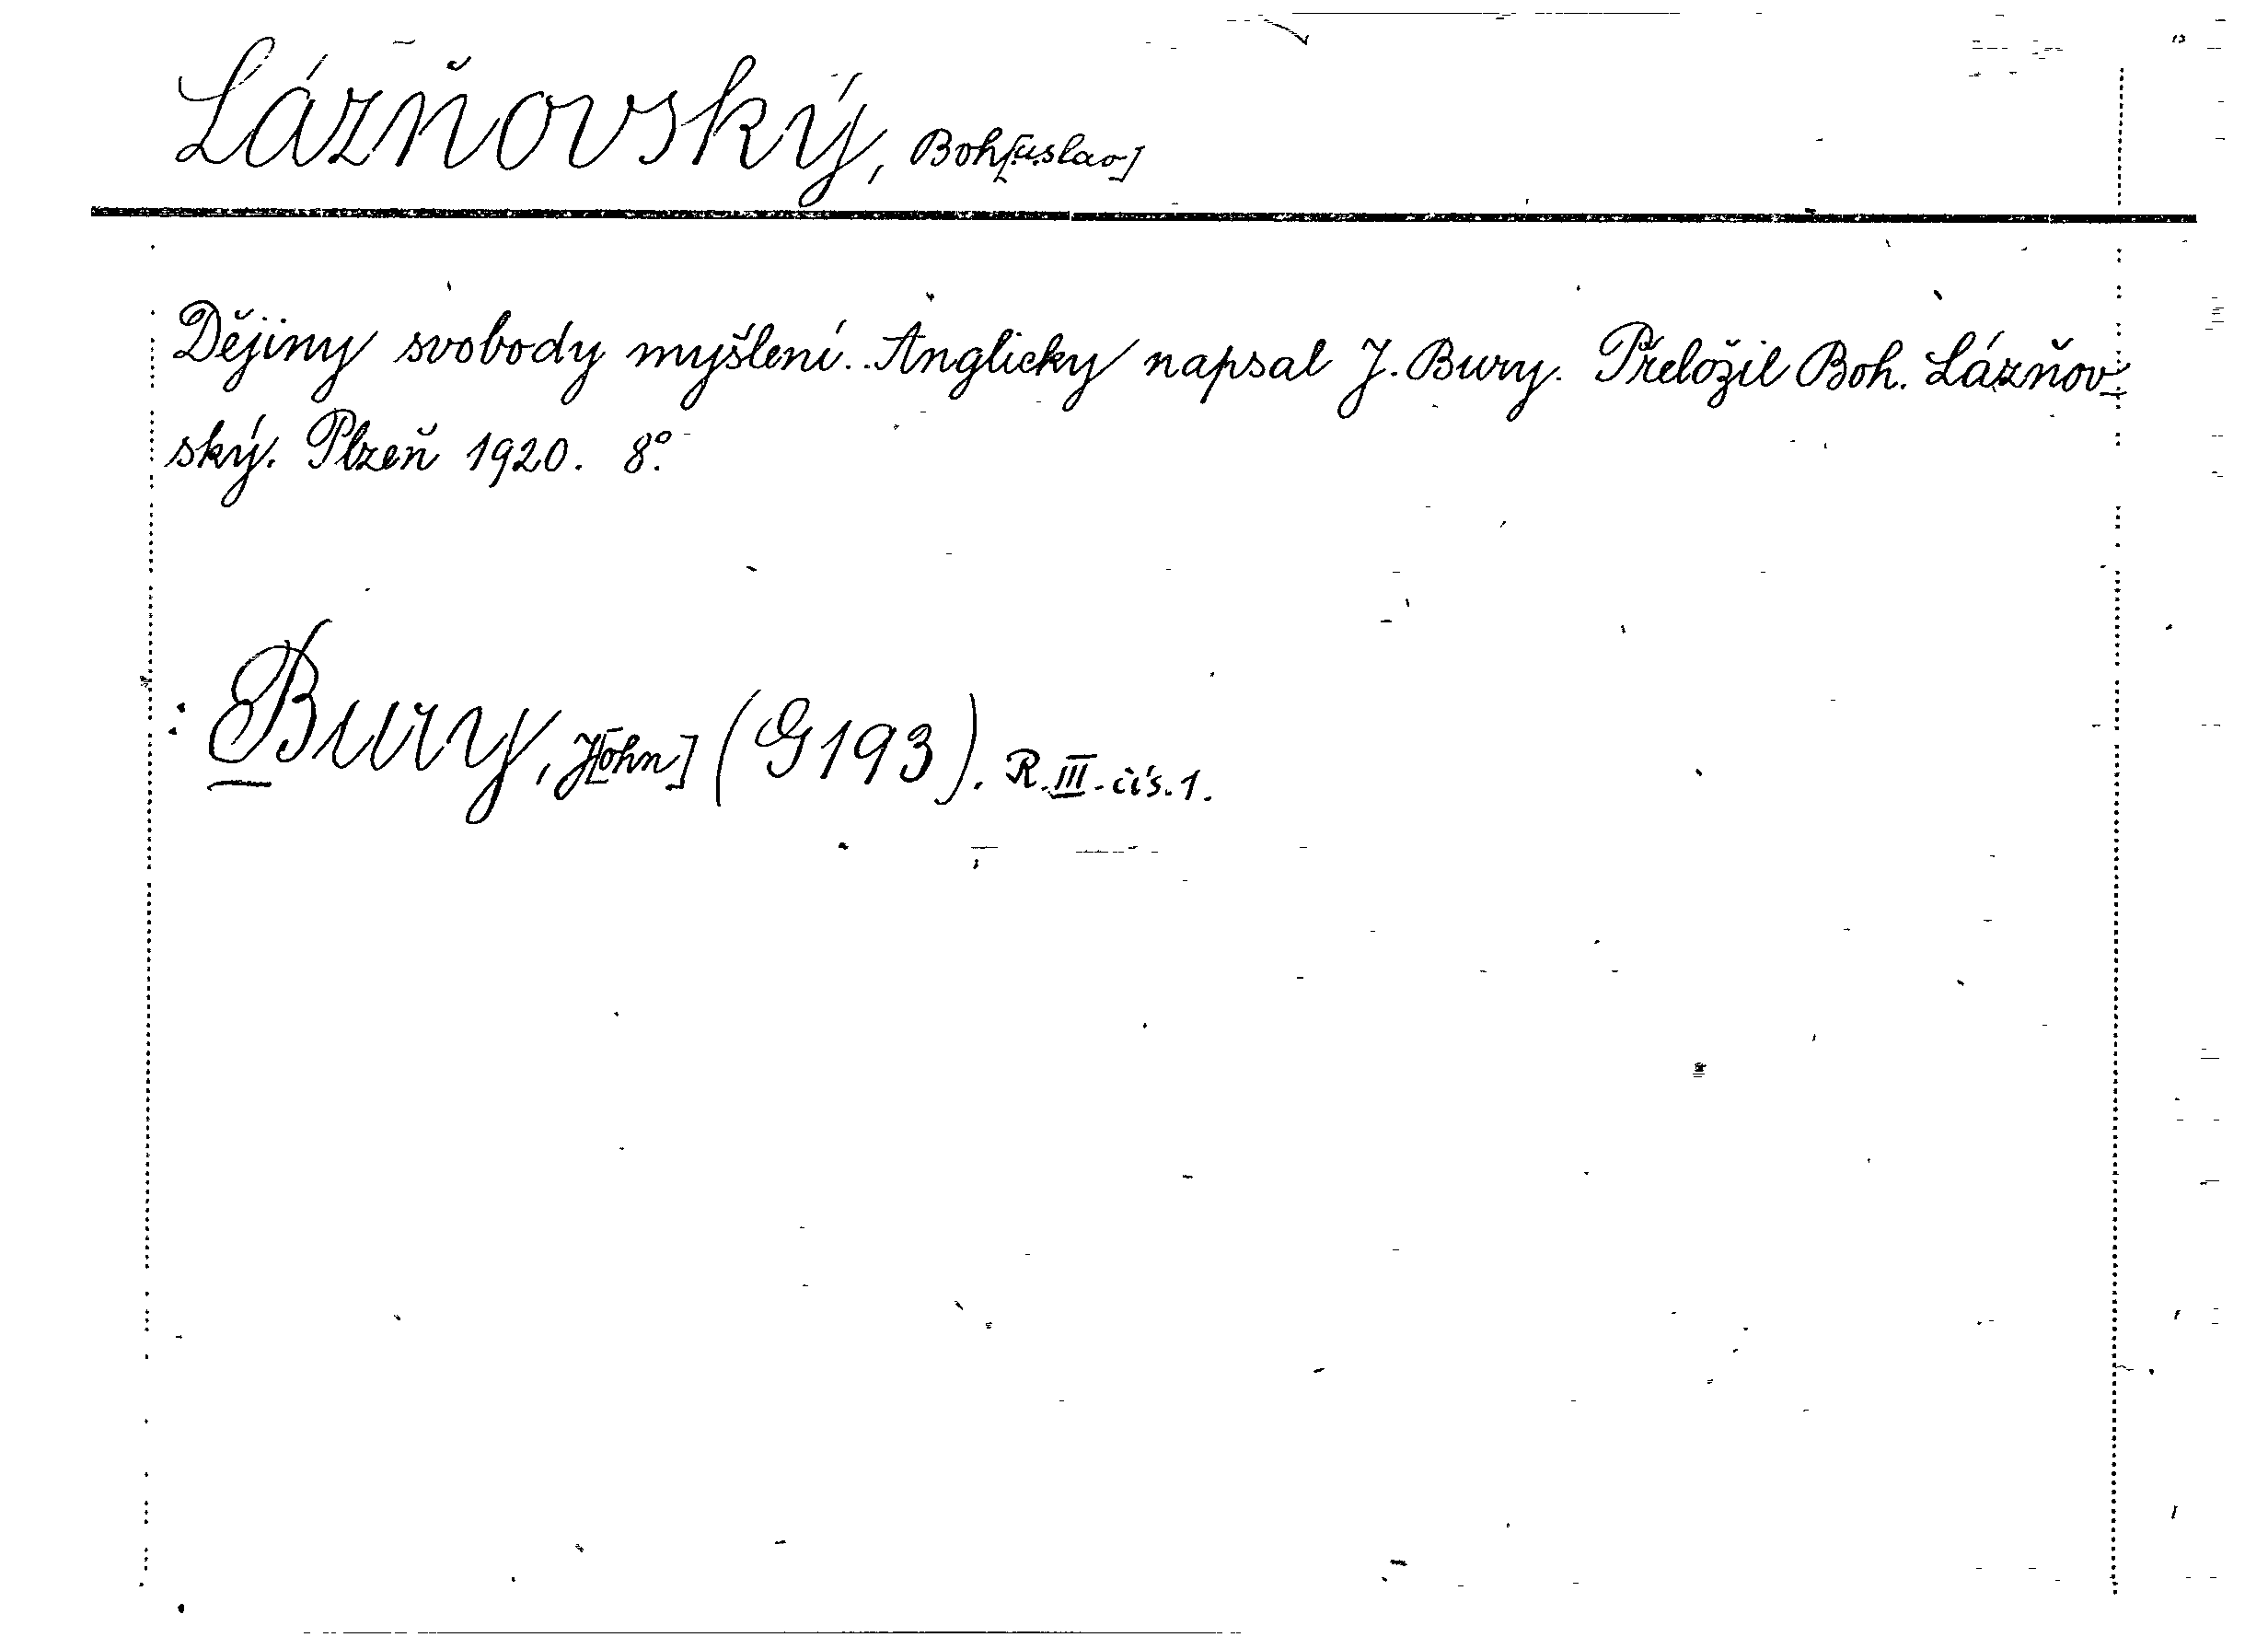 Lázňovský, Boh[uslav]
Dějiny svobody myšlení. Anglicky napsal J. Bury. Přeložil Boh. Lázňov-
ský. Plzeň 1920. 8°.
: Bury, J[ohn] (G 193). R. III. čís. 1.